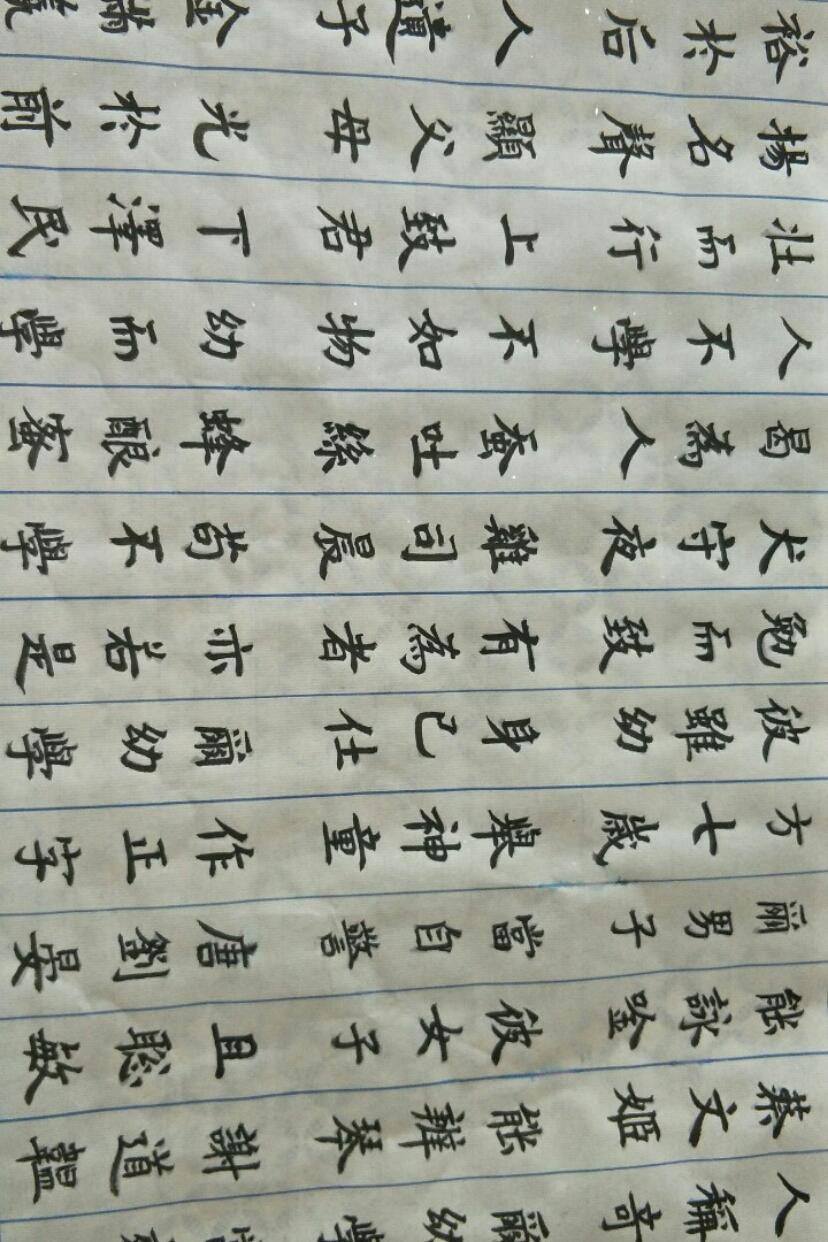 人稱奇 爾幼學
蔡文姬 能辨琴 謝道韞
能詠吟 彼女子 且聰敏
爾男子 當自警 唐劉晏
方七歲 舉神童 作正字
彼雖幼 身已仕 爾幼學
勉而致 有為者 亦若是
犬守夜 雞司晨 苟不學
曷為人 蚕吐絲 蜂釀蜜
人不學 不如物 幼而學
壯而行 上致君 下澤民
揚名聲 顯父母 光於前
裕於后 人遺子 金滿